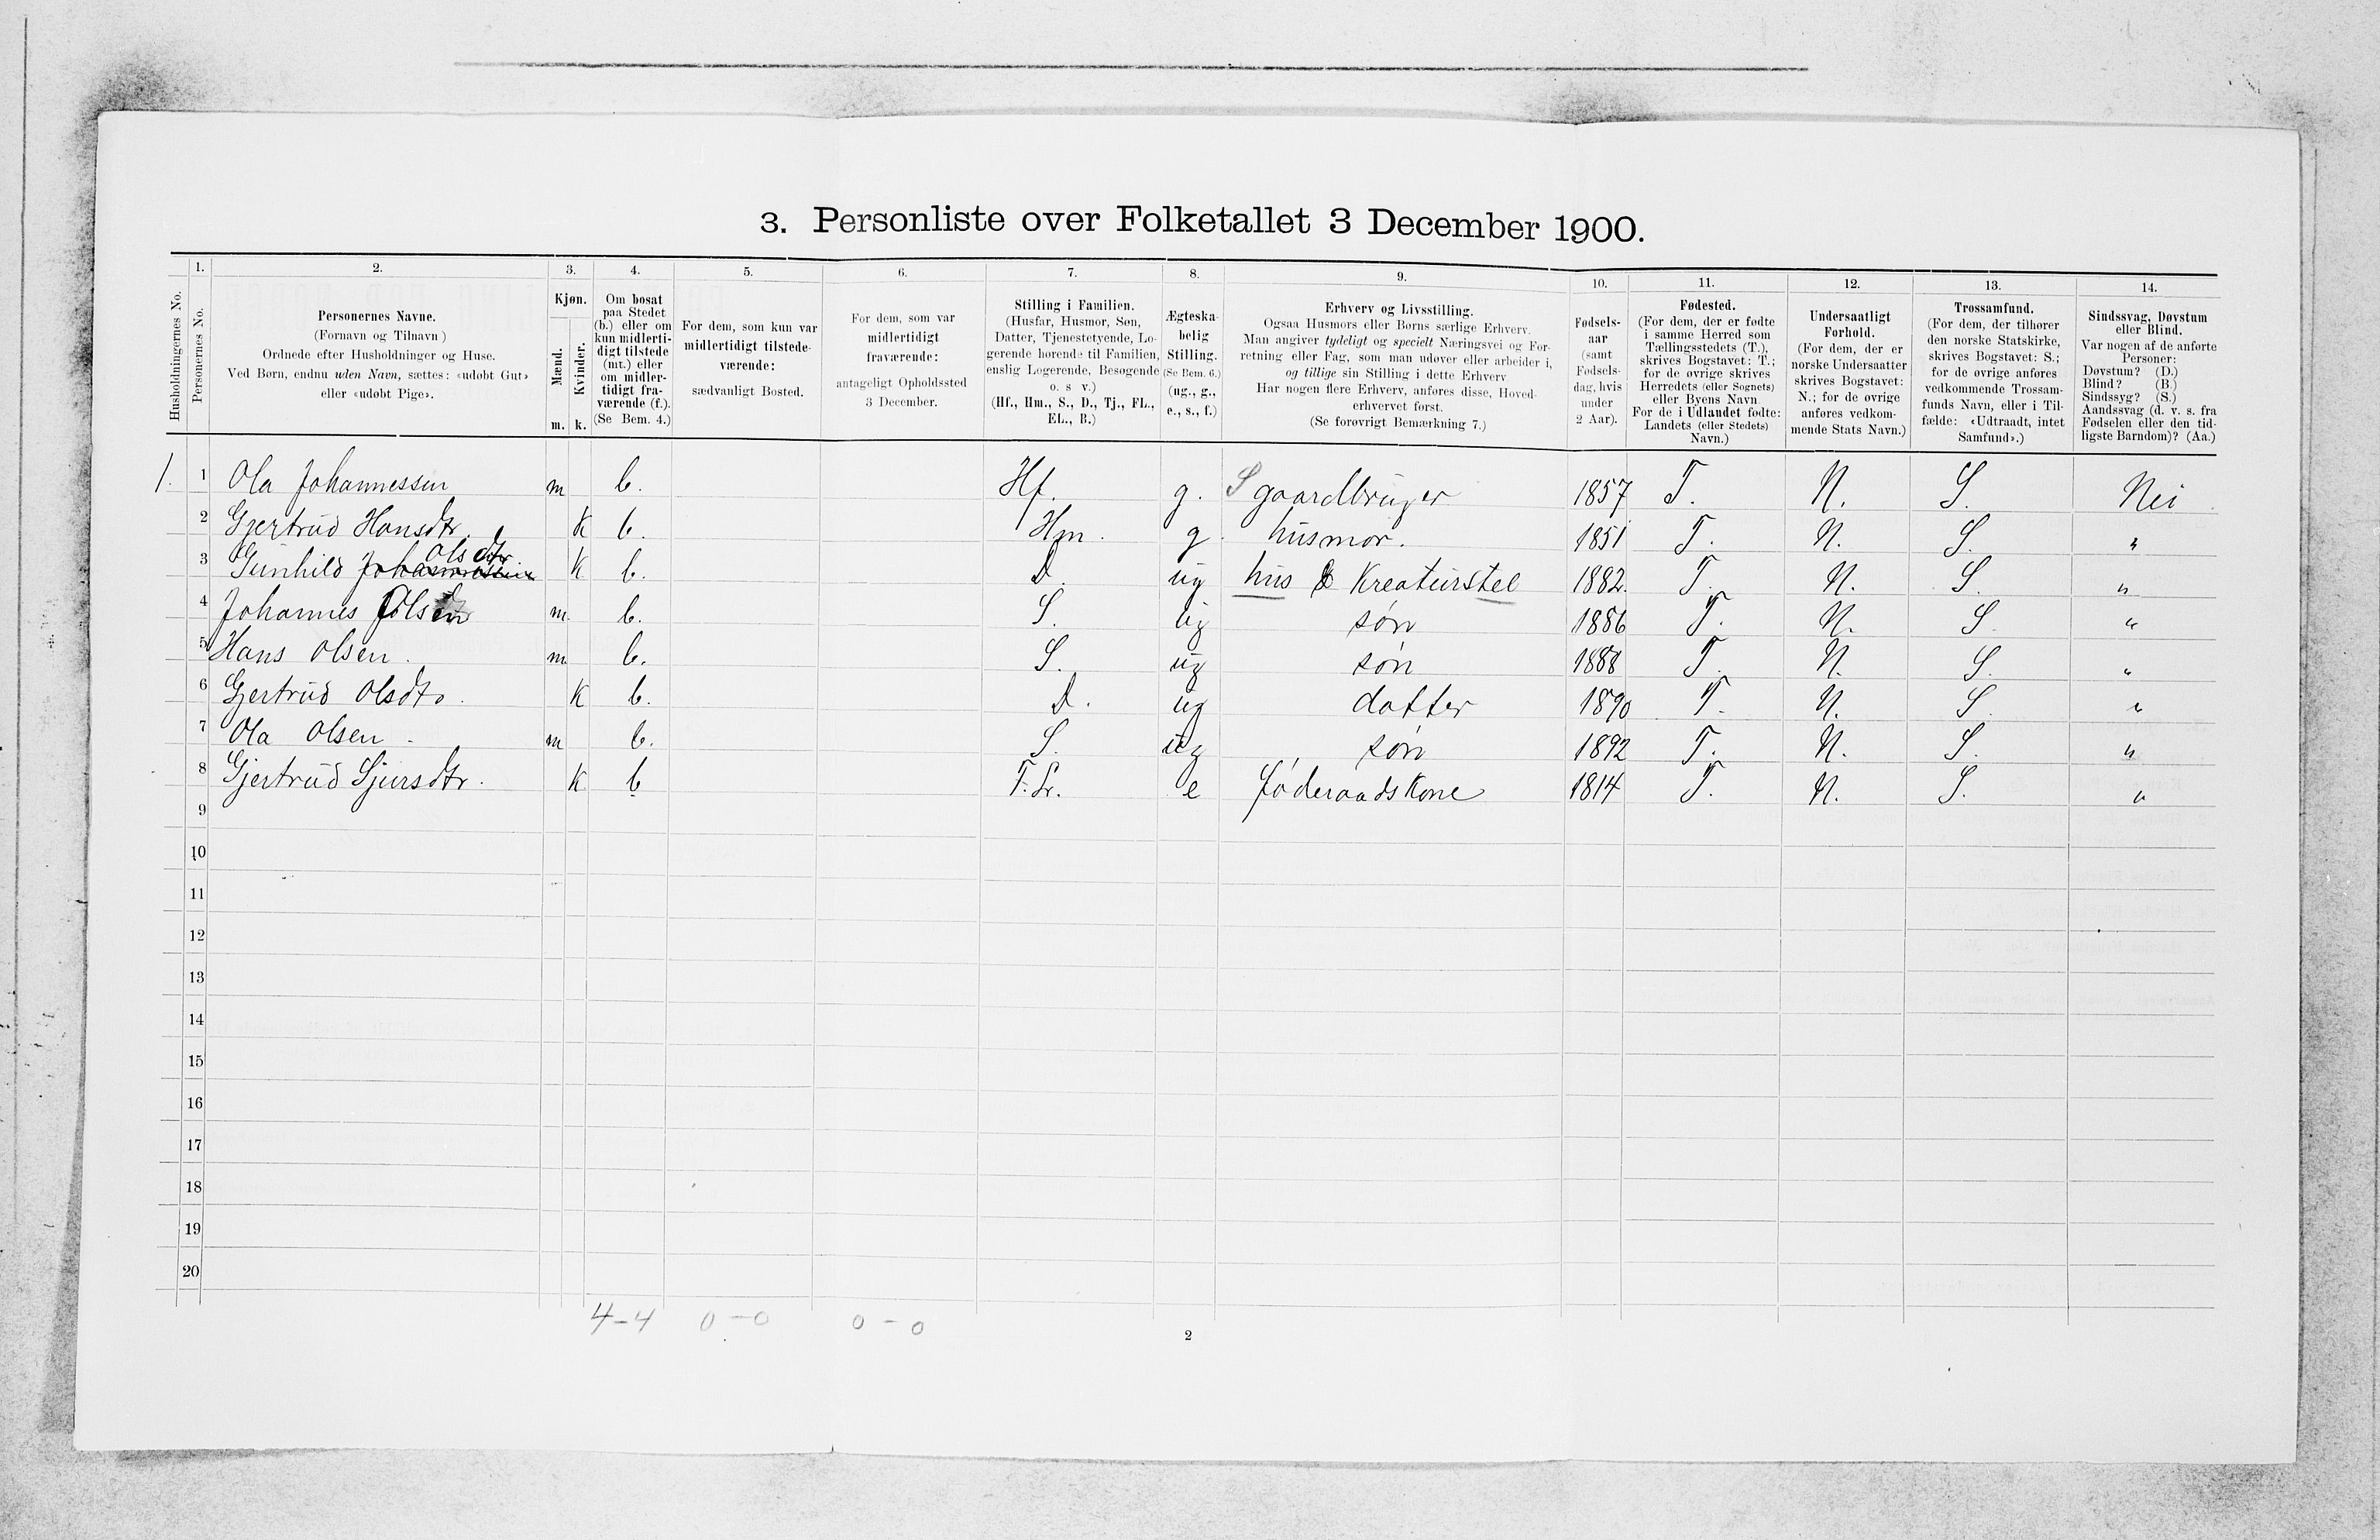 3. Personliste over Folketallet 3 December 1900.
Husholdningernes No.
1. Personernes No.
2. Personernes Navne.
(Fornavn og Tilnavn)
Ordnede efter Husholdninger og Huse.
Ved Børn, endnu uden Navn, sættes: «udøbt Gut»
eller «udøbt Pige».
3. Kjøn.
Mænd. Kvinder.
m. k.
4. Om bosat
paa Stedet
(b.) eller om
kun midlerti-
digt tilstede
(mt.) eller
om midler-
tidigt fra-
værende (f.).
(Se Bem. 4.)
5. For dem, som kun var
midlertidigt tilstede-
værende:
sædvanligt Bosted.
6. For dem, som var
midlertidigt
fraværende:
antageligt Opholdssted
3 December.
7. Stilling i Familien.
(Husfar, Husmor, Søn,
Datter, Tjenestetyende, Lo-
gerende hørende til Familien,
enslig Logerende, Besøgende
o. s. v.)
(Hf., Hm., S., D., Tj., FL.,
EL., B.)
8. Ægteska-
belig
Stilling.
(Se Bem. 6.)
(ug., g.,
e., s., f.)
9. Erhverv og Livsstilling.
Ogsaa Husmors eller Børns særlige Erhverv.
Man angiver tydeligt og specielt Næringsvei og For-
retning eller Fag, som man udøver eller arbeider i,
og tillige sin Stilling i dette Erhverv
Har nogen flere Erhverv, anføres disse, Hoved-
erhvervet først.
(Se forøvrigt Bemærkning 7.)
10. Fødsels-
aar
(samt
Fødsels-
dag, hvis
under
2 Aar).
11. Fødested.
(For dem, der er fødte
i samme Herred som
Tællingsstedets (T.),
skrives Bogstavet: T.;
for de øvrige skrives
Herredets (eller Sognets)
eller Byens Navn
For de i Udlandet fødte:
Landets (eller Stedets)
Navn.)
12. Undersaatligt
Forhold.
(For dem, der er
norske Undersaatter
skrives Bogstavet:
N.; for de øvrige
anføres vedkom-
mende Stats Navn.)
13. Trossamfund.
(For dem, der tilhører
den norske Statskirke,
skrives Bogstavet: S.;
for de øvrige anføres
vedkommende Trossam-
funds Navn, eller i Til-
fælde: «Udtraadt, intet
Samfund».)
14. Sindssvag, Døvstum
eller Blind.
Var nogen af de anførte
Personer:
Døvstum? (D.)
Blind? (B.)
Sindssyg? (S.)
Aandssvag (d. v. s. fra
Fødselen eller den tid-
ligste Barndom)? (Aa.)
1. 1 Ola Johannessen m b. Hf. g. S gaardbruger 1857 T. N. S. Nei
2 Gjertrud Hansdtr. K b. Hm. g. husmor. 1851 T. N. S. "
3 Gunhild Johannessen Olsdtr. K b. D. ug hus & Kreaturstel 1882. T. N. S. "
4 Johannes Olsen m b. S. ug søn 1886 T. N. S. "
5 Hans Olsen. m b. S. ug søn 1888 T. N. S. "
6 Gjertrud Olsdtr. K b. D. ug datter 1890 T. N. S. "
7 Ola Olsen. m b. S. ug søn 1892 T. N. S. "
8 Gjertrud Sjursdtr. K b e føderaadskone 1814 T. N. S. "
9
10
11
12
13
14
15
16
17
18
19
20
4-4 0-0 0-0
2